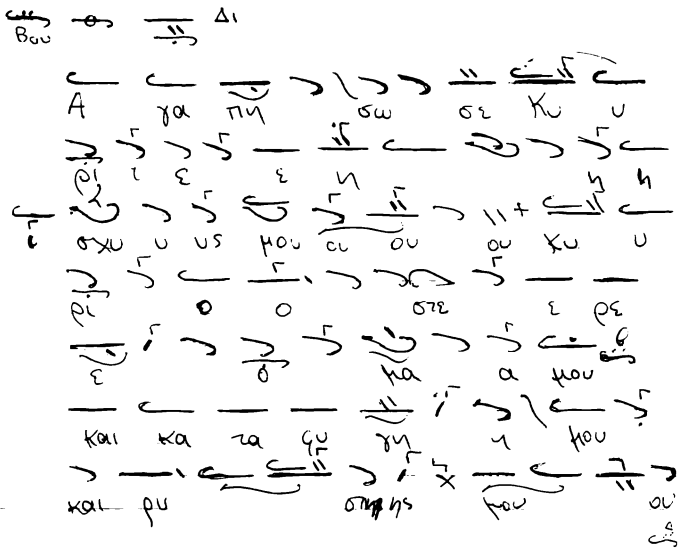 Βου Δι
Α γα πη σω σε Κυ υ
ρι ι ε ε η η η
ι σχυ υ υς μου ου ου ου Κυ υ
ρι ο ο στε ε ρε
ε ο μα α μου
και κα τα φυ γη η μου
και ρυ στης μου ου